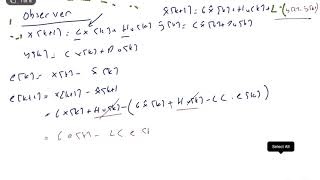 Observer
x[k+1] = Gx[k] + Hu[k] x̂[k+1] = Gx̂[k] + Hu[k] + L
y[k] = Cx[k] + Du[k]
e[k] = x[k] - x̂[k]
e[k+1] = x[k+1] - x̂[k+1]
= Gx[k] + Hu[k] - (Gx̂[k] + Hu[k] - LC · e[k])
= Ge[k] - LC e[k
Select All